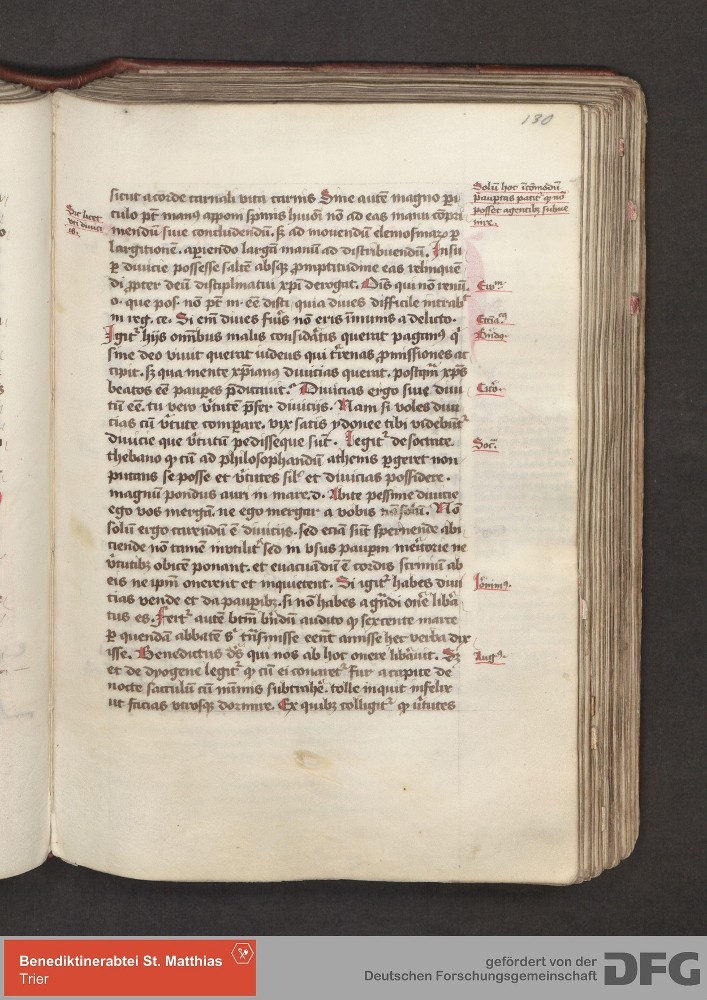 130
sicut a corde carnali vita carnis Sine autē magno ꝑi
culo pt̄ man⁹ appoīn spīnis hui⁹ōi nō ad eas manu cōpri
mendū siue concludendū. sꝫ ad mouendū elemosinaꝝ ꝑ
largitionē. aperiendo largā manū ad distribuendū. Insuꝑ
ꝑ diuicie possesse saltē absqꝫ ꝓmptitudine eas relinquē
di ꝓpter deū disciplinatui xp̄i derogat. Dīs qui nō renū.
o. que pos. nō pt̄ m. eē disci quia diues difficile intrabᵗ
in reg. ce. Si em̄ diues fuīs nō eris īmunis a delicto.
Igitᵗ hijs om̄ibus malis considātis querat pagan⁹ qͥ
sine deo viuit querat iudeus qui t̄renas ꝓmissiones ac
cipit. sꝫ qua mente xp̄ian⁹ diuicias querat. postqm̄ xp̄s
beatos eē pauꝑes p̄dicauit. Diuicias ergo siue diui
tū eē. tu vero v̄tutē p̄fer diuicijs. Nam si voles diui
cias cū v̄tute compare. vix satis ydonee tibi videbūtᵗ
diuicie que v̄tutū pedisseque sūt. Legitᵗ de socrate
thebano qͥ cū ad philosophandū athenis ꝑgeret non
putans se posse et v̄tutes siłͥ et diuicias possidere.
magnū pondus auri in mare. d. Abite pessime diuicie
ego vos mergā. ne ego mergar a vobis nō solū. Nō
solū ergo cauendū ē diuicijs. sed eciā sūt spernende abi
ciende nō tamē inutilitᵗ sed in vsus pauꝑum meritorie ne
v̄tutibꝫ obicē ponant. et euacuādū ē cordis scriniū ab
eis ne ip̄m onerent et inquietent. Si igitᵗ habes diui
cias vende et da pauꝑibꝫ. si nō habes a gn̄di onē libā
tus es. Fertᵗ autē btm̄ bn̄dū audito qͥ sexcente marce
ꝑ quendā abbatē sͥ tn̄smisse eēnt amisse hec verba dix
isse. Benedictus ds̄ qui nos ab hoc onere libāuit. Sꝫ
et de dyogene legitᵗ qͥ cū ei conaretᵗ fur a capite de
nocte sacculū cū nūmis subtrahē. tolle inquit infelix
ut facias vtrosqꝫ dormire. Ex quibꝫ colligitᵗ qͥ v̄tutes
Sic licet
diuici
Solū hoc īcōmodū
pauꝑtas patitᵗ qͥ nō
possēt agentibꝫ subue
nire.
Bn̄dꝰ.
Cicō.
Socᵃ.
Iōnim⁹.
Aug⁹.
Benediktinerabtei St. Matthias
Trier
gefördert von der
Deutschen Forschungsgemeinschaft
DFG